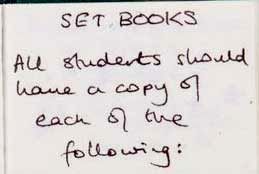 SET BOOKS
All students should
have a copy of
each of the
following: